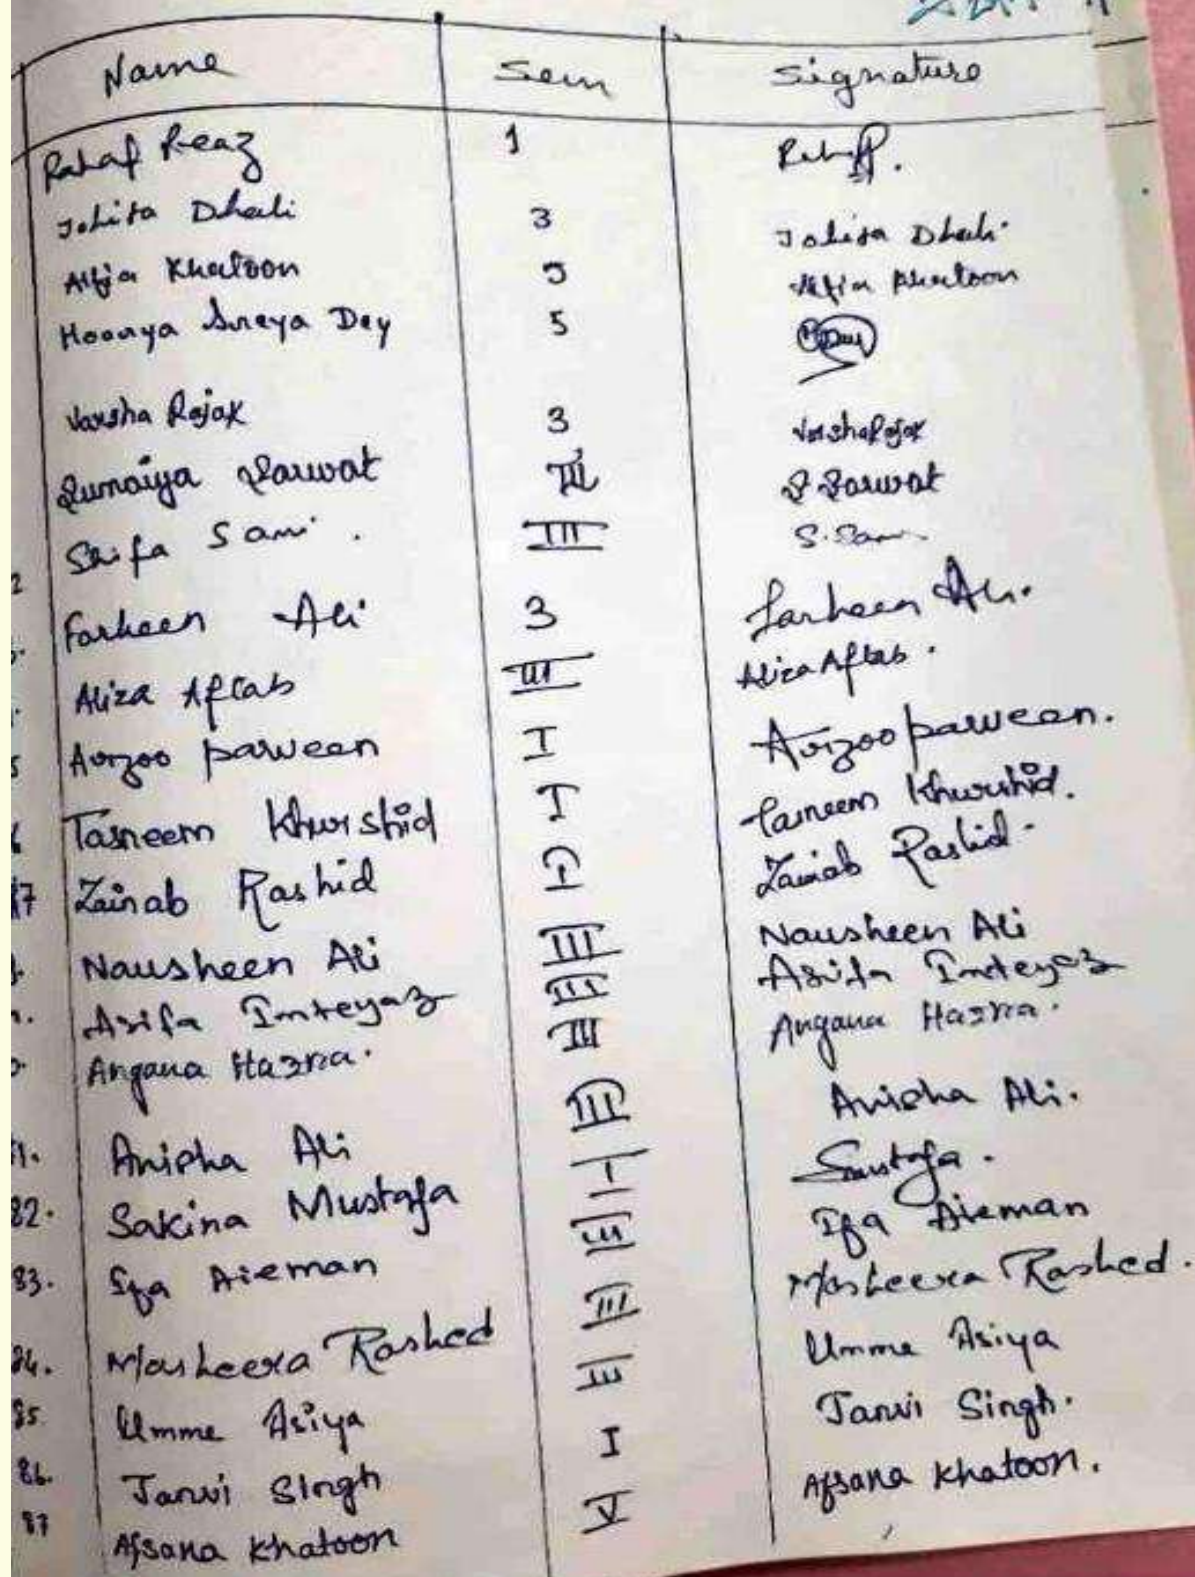 Name Sem Signature
Rahaf Reaz 1
Johita Dhali 3 Johita Dhali
Alfia Khatoon 5 Alfia Khatoon
Sreya Dey 5
Varsha Rajak 3 Varsha Rajak
Sumaiya Sarwat III S Sarwat
Saifa Sami. III S. Sami
Farheen Ali 3 Farheen Ali.
Aliza Aftab III Aliza Aftab.
Arzoo parween I Arzoo parween.
Tasneem Khurshid I Tasneem Khurshid.
87 Zainab Rashid I Zainab Rashid.
Nausheen Ali III Nausheen Ali
Asifa Imteyaz III Asifa Imteyaz
Angana Hazra. III Angana Hazra.
Anisha Ali III Anisha Ali.
82. Sakina Mustafa I Smustafa.
83. Ifa Aieman III Ifa Aieman
84. Masheera Rashed III Masheera Rashed.
85. Umme Asiya III Umme Asiya
86. Janvi Singh I Janvi Singh.
87 Afsana Khatoon V Afsana Khatoon.